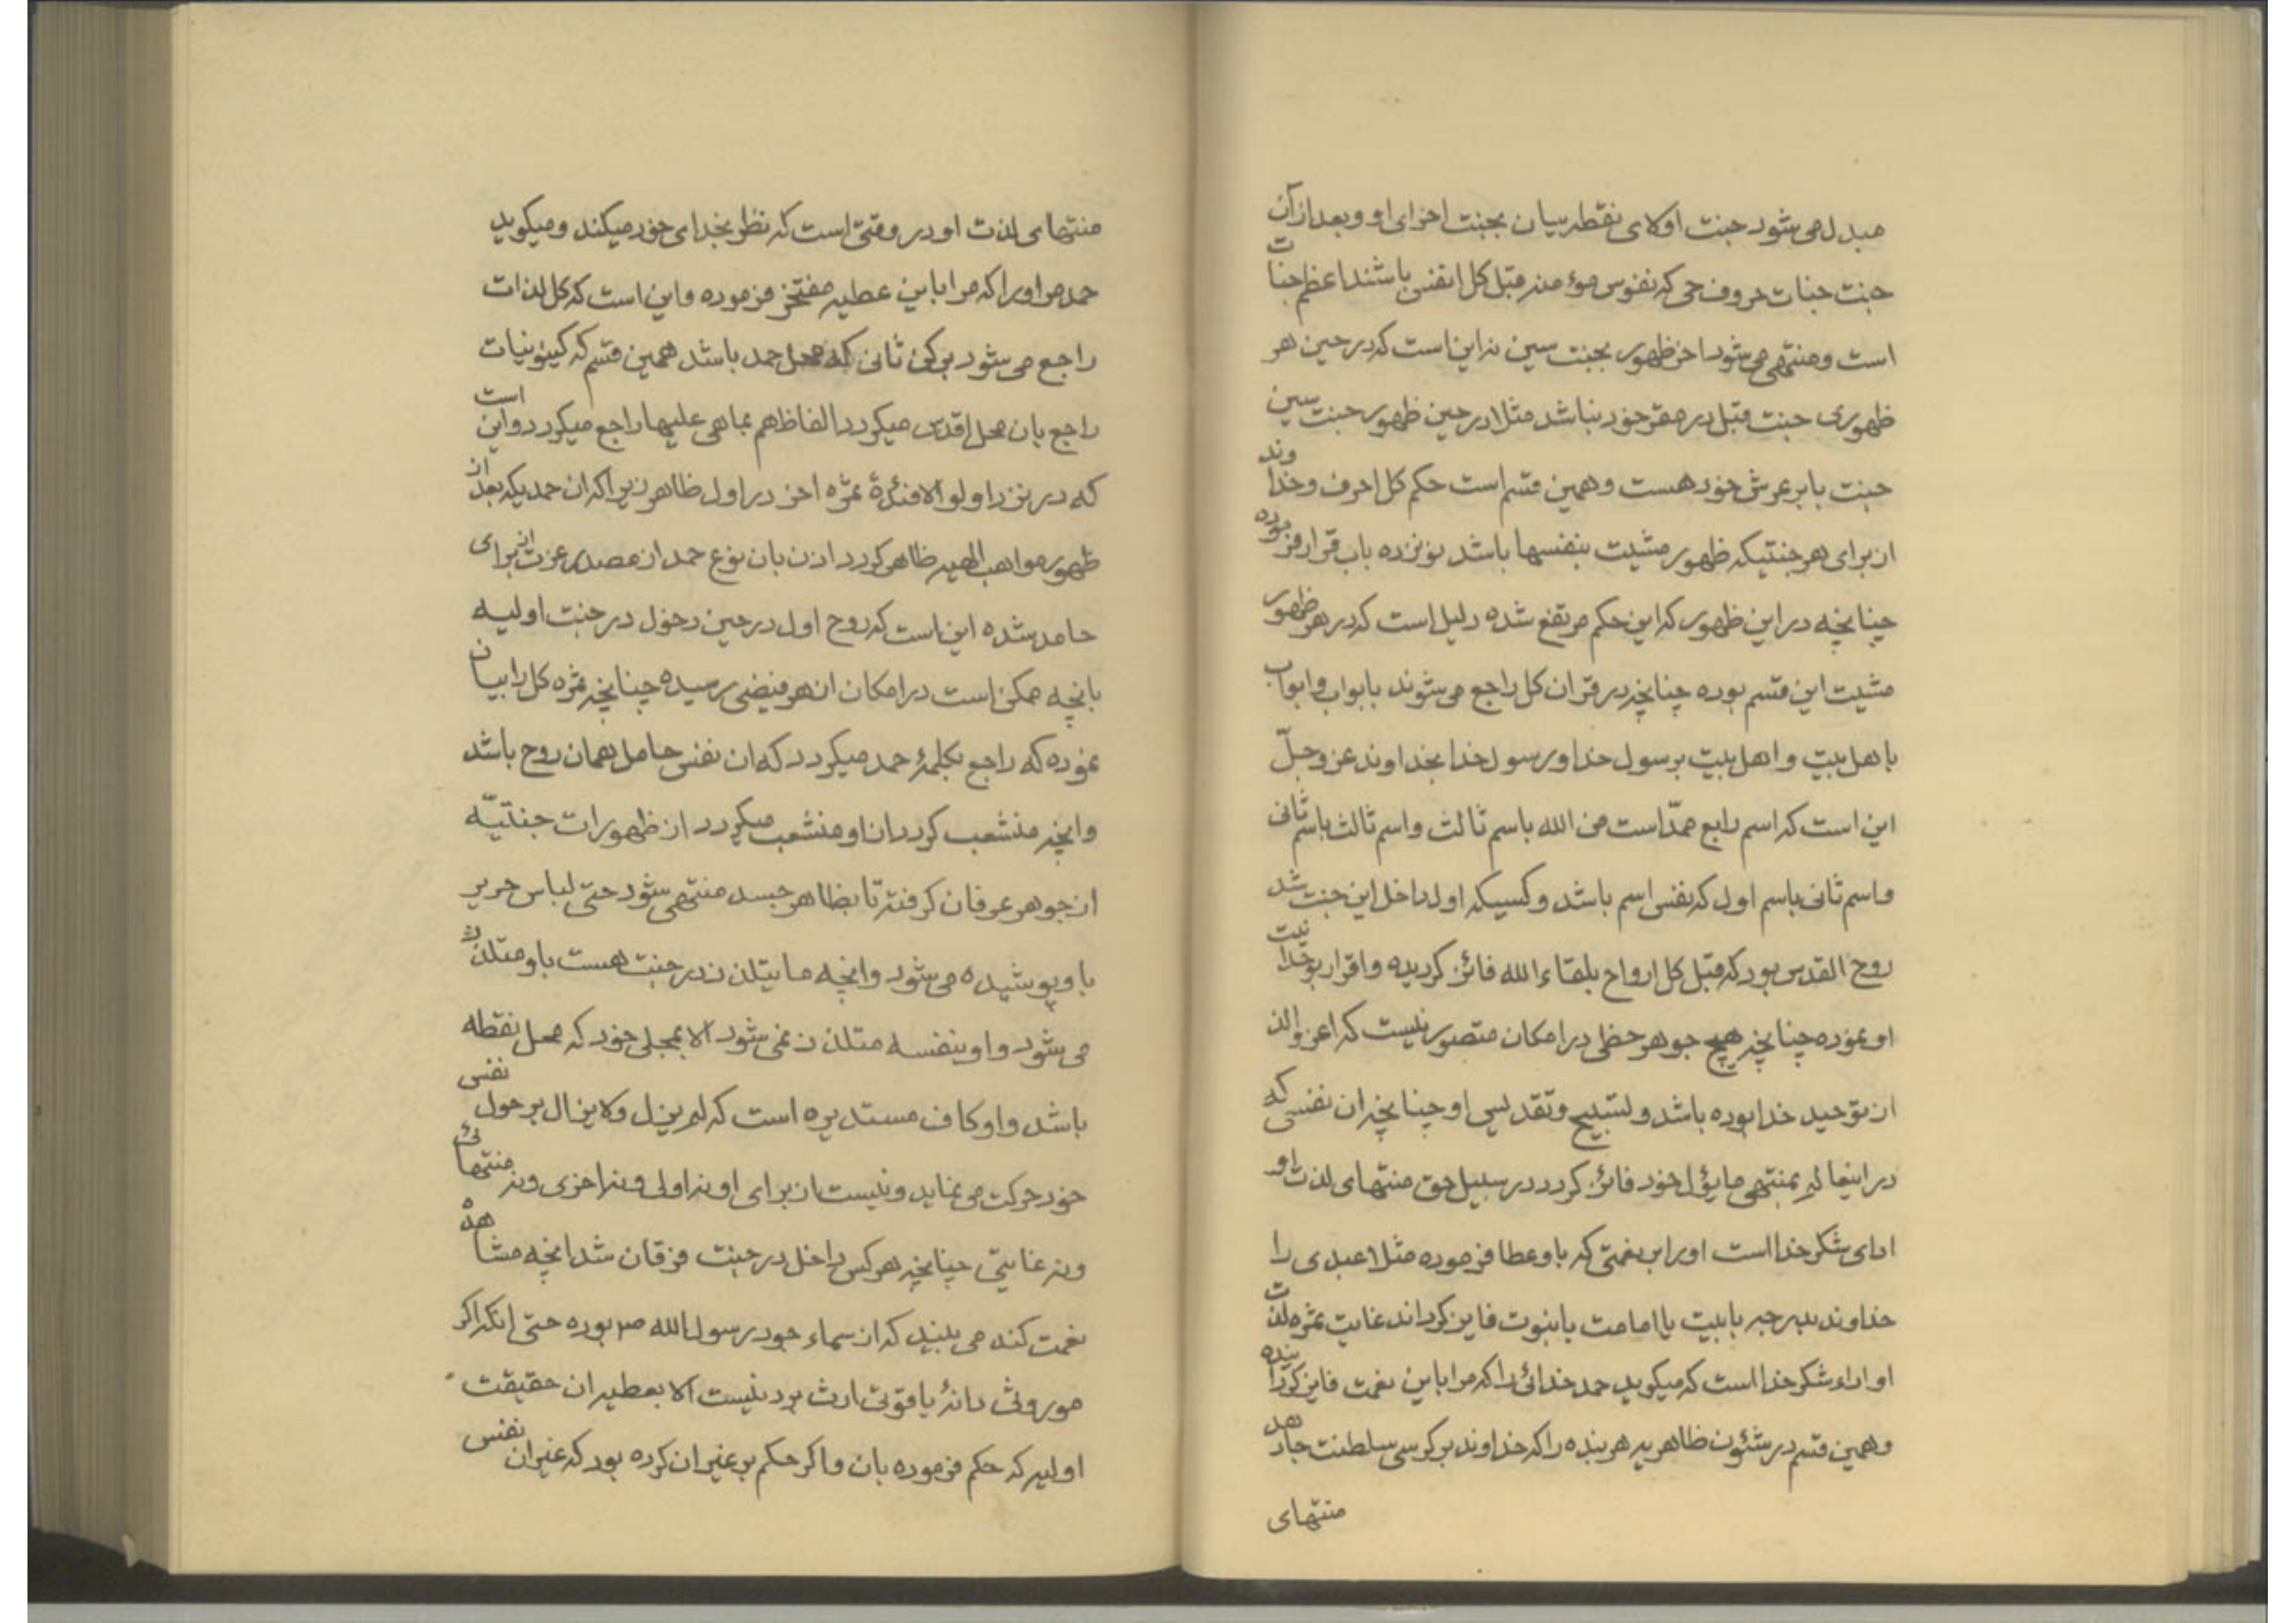 مبدل می شود جنت اولای نقطه بیان بجنت اخرای او و بعد از آن
جنت جنات حروف حی که نفوس مؤمنه قبل کل انفس باشند اعظم جنات
است و منتهی می شود اخر ظهور بجنت سین نه این است که در حین هر
ظهوری جنت قبل در مقر خود نباشد مثلا در حین ظهور جنت سین
جنت با بر عرش خود هست و همین قسم است حکم کل احرف و خداوند
از برای هر جنتیکه ظهور مشیت بنفسها باشد نوزده باب قرار فرموده
چنانچه در این ظهور که این حکم مرتفع شده دلیل است که در هر ظهور
مشیت این قسم بوده چنانچه در قران کل راجع می شوند بابواب و ابواب
باهل بیت و اهل بیت برسول خدا و رسول خدا بخداوند عز و جلّ
این است که اسم رابع ممدّ است من الله باسم ثالث و اسم ثالث باسم ثانی
و اسم ثانی باسم اول که نفس اسم باشد و کسیکه اول داخل این جنت شد
روح القدس بود که قبل کل ارواح بلقاء الله فائز گردیده و اقرار بوحدانیت
او نموده چنانچه هیچ جوهر حظی در امکان متصور نیست که اعز و الذ
از توحید خدا بوده باشد و تسبیح و تقدیس او چنانچه ان نفسی که
در اینعالم بمنتهی مایؤل خود فائز گردد در سبیل حق منتهای لذت او
ادای شکر خدا است او را بر نعمتی که باو عطا فرموده مثلا عبدی را
خداوند بدرجه بابیت یا امامت یا نبوت فایز گرداند غایت ثمره لذت
او اداء شکر خدا است که میگوید حمد خدائی را که مرا باین نعمت فایز گردانیده
و همین قسم در شئون ظاهریه هر بنده را که خداوند بر کرسی سلطنت جا دهد
منتهای
منتهای لذت او در وقتی است که نظر بخدای خود میکند و میگوید
حمد مر او را که مرا باین عطیه مفتخر فرموده و این است که کل لذات
راجع می شود برکن ثانی که محل حمد باشد همین قسم که کینونیات
راجع بان محل اقدس میگردد الفاظ هم بما هی علیها راجع میگردد و این است
که در نزد اولو الافئدة ثمره اخر در اول ظاهر زیرا که ان حمدیکه بعد از
ظهور مواهب الهیه ظاهر گردد اذن بان نوع حمد از مصدر عزت از برای
حامد شده این است که روح اول در حین دخول در جنت اولیه
بانچه ممکن است در امکان از هر فیضی رسیده چنانچه ثمره کل را بیان
نموده که راجع بکلمهٔ حمد میگردد که ان نفس حامل همان روح باشد
و انچه منشعب گردد از او منشعب میگردد از ظهورات جنتیّه
از جوهر عرفان گرفته تا بظاهر جسد منتهی شود حتی لباس حریر
باو پوشیده می شود و انچه ما یتلذذ در جنت هست باو متلذذ
می شود و او بنفسه متلذذ نمی شود الا بمجلی خود که محل نقطه
باشد و او کاف مستدیره است که لم یزل و لا یزال بر حول نفس
خود حرکت می نماید و نیست از برای او نه اولی و نه اخری و نه منتهائی
و نه غایتی چنانچه هر کس داخل در جنت فرقان شد انچه مشاهده
نعمت کند می بیند که از سماء جود رسول الله ص بوده حتی انکه اگر
موروثی دانهٔ یاقوتی ارث برد نیست الا بعطیه ان حقیقت
اولیه که حکم فرموده بان و اگر حکم بر غیر ان کرده بود که غیر ان نفس